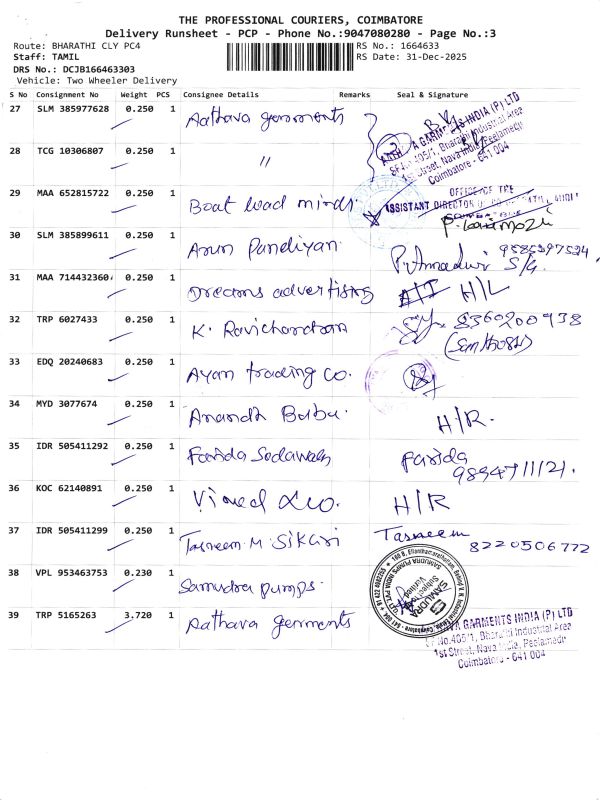 THE PROFESSIONAL COURIERS, COIMBATORE
Delivery Runsheet - PCP - Phone No.:9047080280 - Page No.:3
Route: BHARATHI CLY PC4 RS No.: 1664633
Staff: TAMIL RS Date: 31-Dec-2025
DRS No.: DCJB166463303
Vehicle: Two Wheeler Delivery
S No Consignment No Weight PCS Consignee Details Remarks Seal & Signature
27 SLM 385977628 0.250 1 Aathava garments
A GARMENTS INDIA (P) LTD
405/1, Bharathi Industrial Area
1st Street, Nava India, Peelamedu
Coimbatore - 641 004
28 TCG 10306807 0.250 1 "
29 MAA 652815722 0.250 1 Boat load minds.
OFFICE OF THE
ASSISTANT DIRECTOR
30 SLM 385899611 0.250 1 Arun Pandiyan. 9585397524
S/G.
31 MAA 714432360 0.250 1 Dreams advertising H/L
32 TRP 6027433 0.250 1 K. Ravichandran 8360200938
(Santhosh)
33 EDQ 20240683 0.250 1 Ayan trading co.
34 MYD 3077674 0.250 1 Anandh Babu. H/R.
35 IDR 505411292 0.250 1 Farida Sodawala Farida
9894711121.
36 KOC 62140891 0.250 1 H/R
37 IDR 505411299 0.250 1 Tasneem M Tasneem
8220506772
38 VPL 953463753 0.230 1 Samudra pumps.
SAMUDRA
39 TRP 5165263 3.720 1 Aathava garments
VA GARMENTS INDIA (P) LTD
No.405/1, Bharathi Industrial Area
1st Street, Nava India, Peelamedu
Coimbatore - 641 004